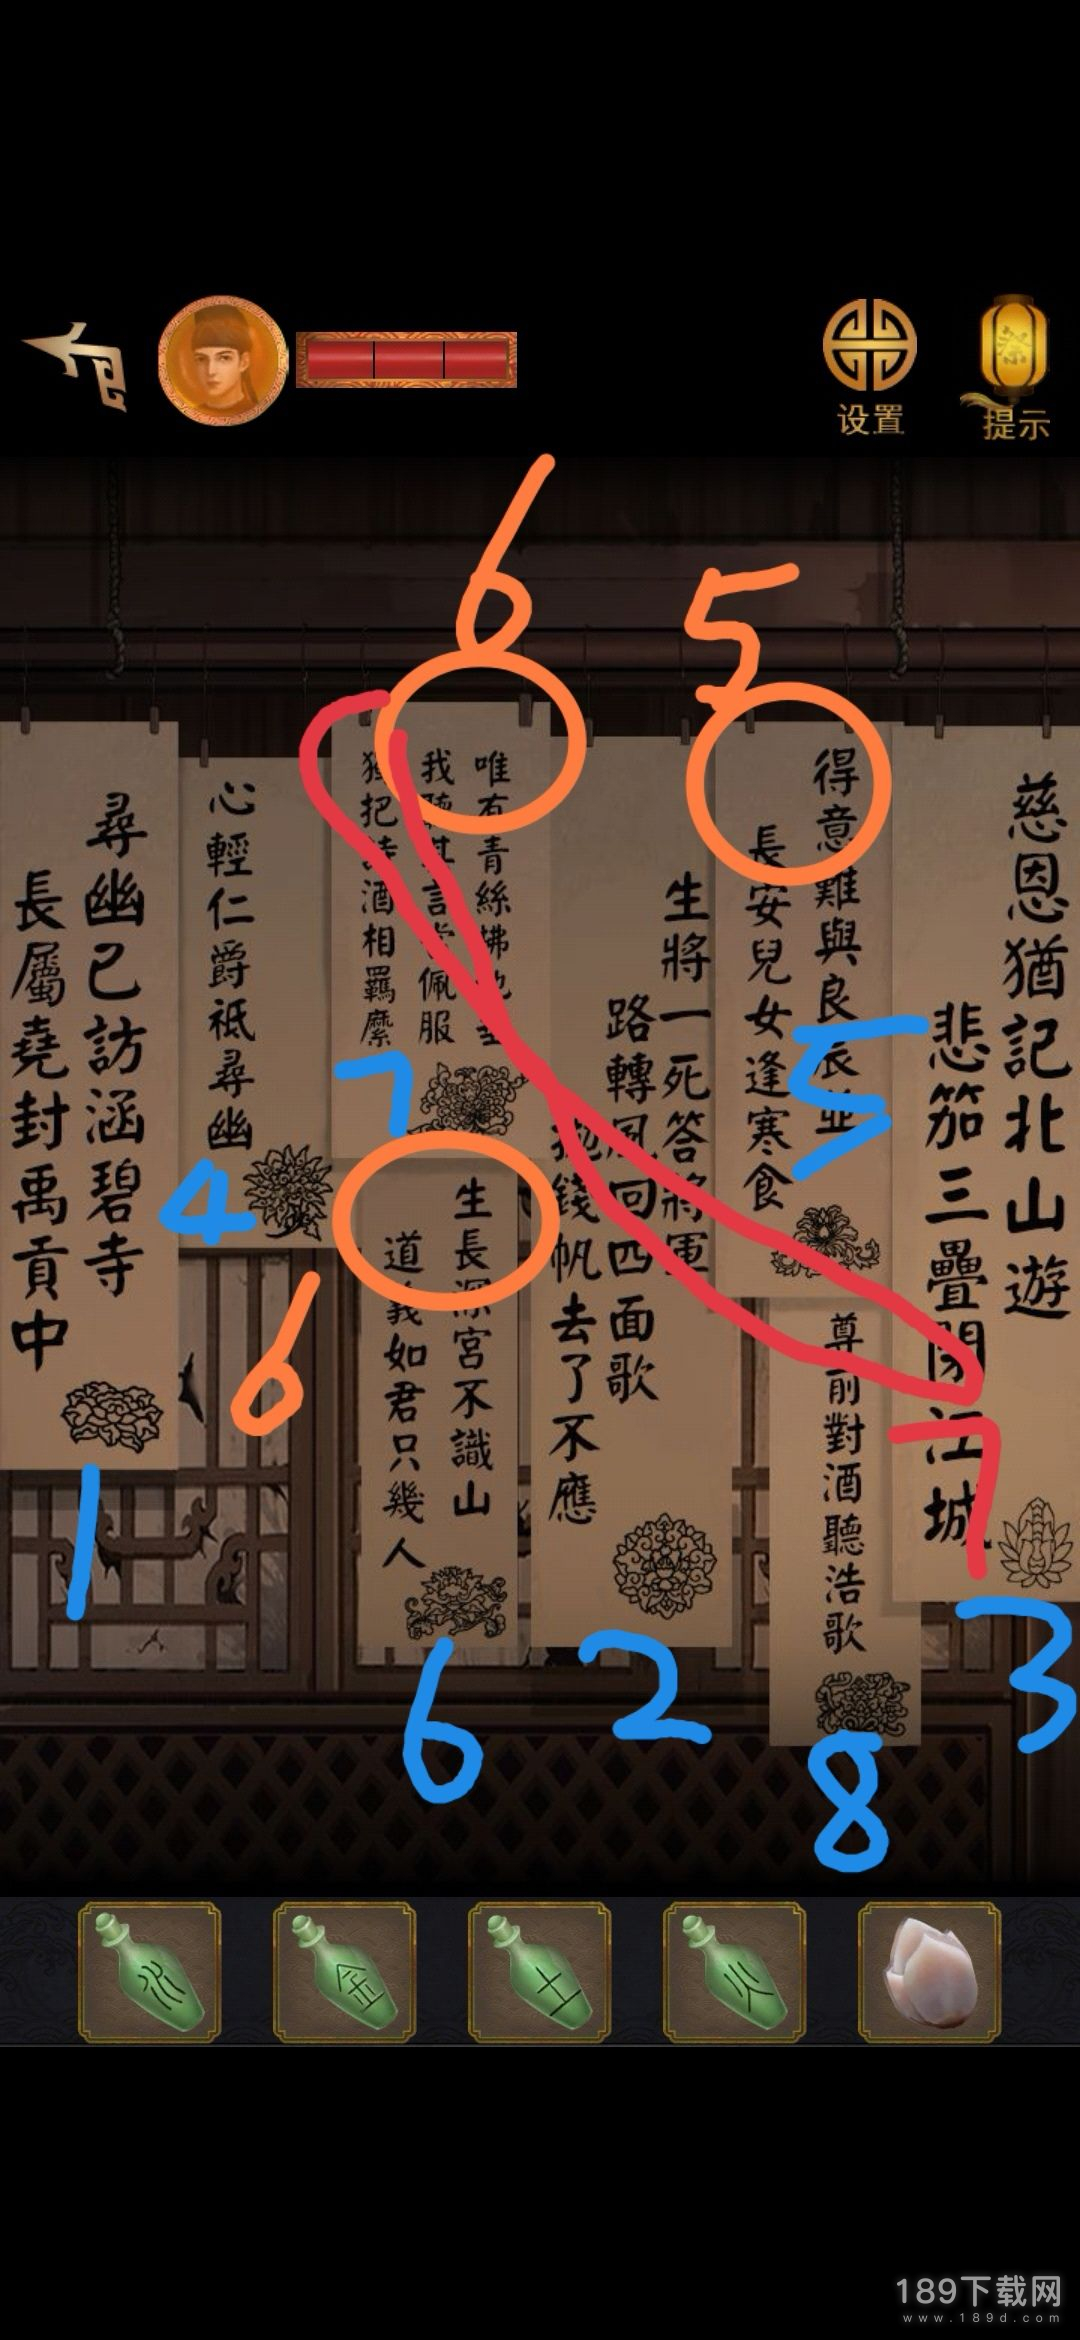 设置
提示
6
5
慈恩猶記北山遊
悲笳三疊閉江城
得意難與良辰並
長安兒女逢寒食
生將一死答將軍
路轉風回四面歌
錢帆去了不應
唯有青絲拂
我聽其言常佩服
把詩酒相羈縻
心輕仁爵祗尋幽
尋幽已訪涵碧寺
長屬堯封禹貢中
7
5
4
生長深宮不識山
道義如君只幾人
尊前對酒聽浩歌
6
7
1
6
2
3
8
水
金
土
火
189下载网
www.189d.com